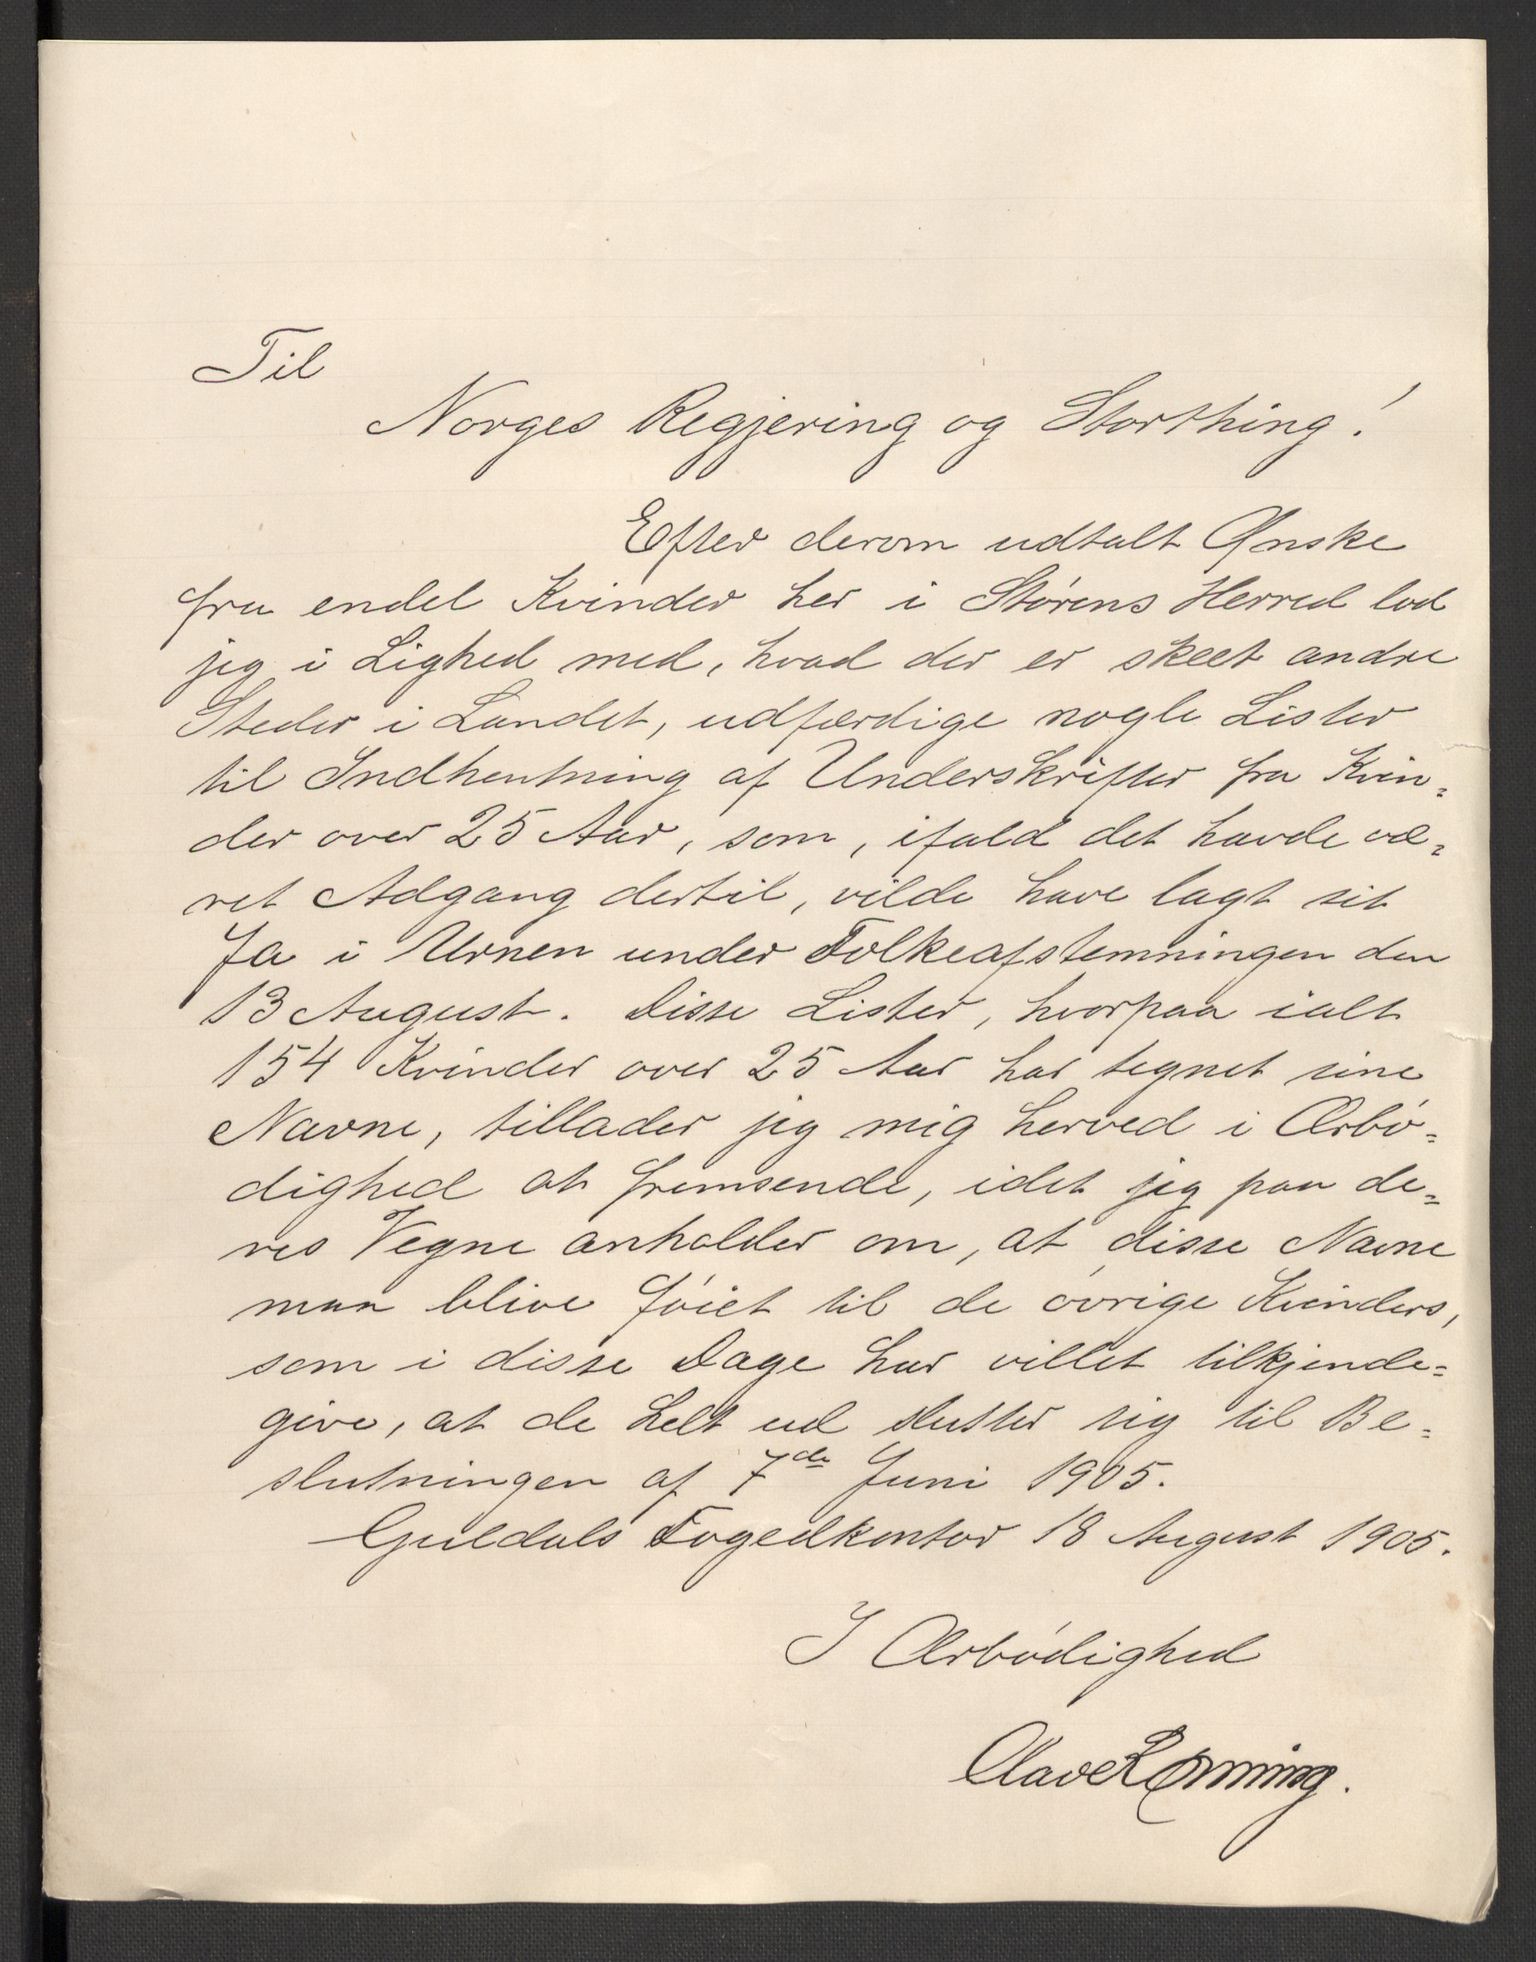 Til
Norges Regjering og Storthing!
Efter derom udtalt Ønske
fra endel Kvinder her i Størens Herred lod
jeg i Lighed med, hvad der er skeet andre
Steder i Landet, udfærdige nogle Lister
til Indhentning af Underskrifter fra Kvin=
der over 25 Aar, som, ifald det havde væ=
ret Adgang dertil, vilde have lagt sit
Ja i Urnen under Folkeafstemningen den
13 August. Disse Lister, hvorpaa ialt
154 Kvinder over 25 Aar har tegnet sine
Navne, tillader jeg mig herved i Ærbø=
dighed at fremsende, idet jeg paa de=
res Vegne anholder om, at disse Navne
maa blive føiet til de øvrige Kvinders,
som i disse Dage har villet tilkjende=
give, at de helt ud slutter sig til Be=
slutningen af 7de Juni 1905.
Guldals Fogedkontor 18 August 1905.
I Ærbødighed
Olav Rønning.